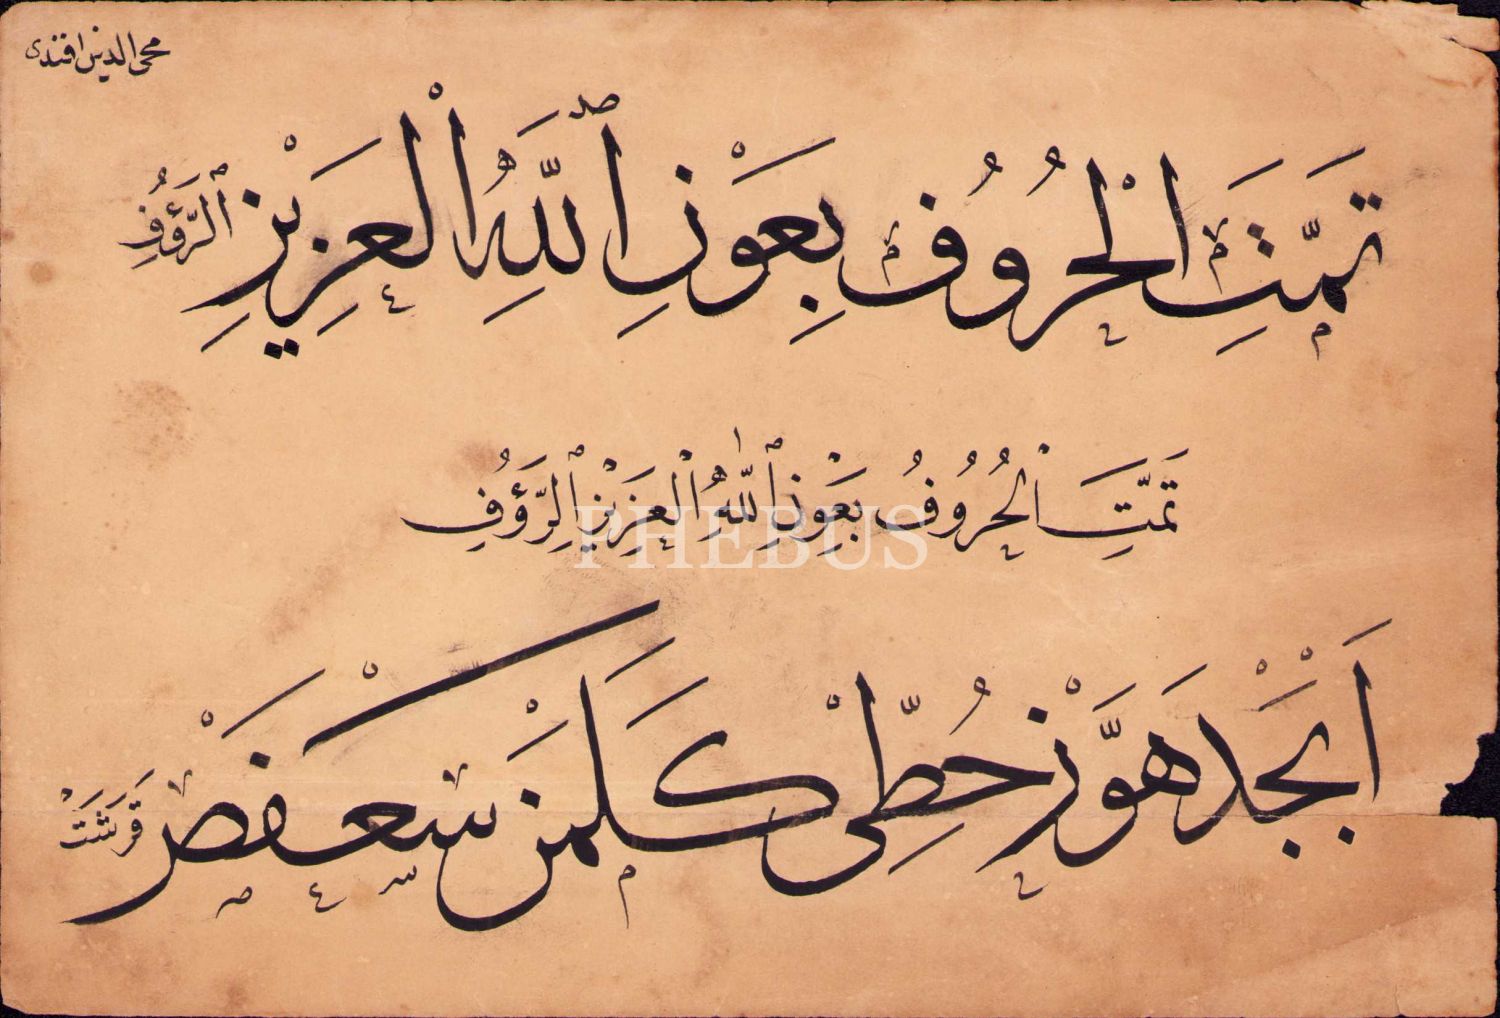 محى الدين افندى
تَمَّتِ الْحُرُوفُ بِعَوْنِ ٱللَّهِ الْعَزِيزِ ٱلرَّؤُفِ
تَمَّتِ الْحُرُوفُ بِعَوْنِ ٱللّٰهِ الْعَزِيْزِ ٱلرَّؤُفِ
PHEBUS
اَبْجَدْ هَوَّزْ حُطِّىْ كَلَمَنْ سَعْفَصْ قَرَشَتْ